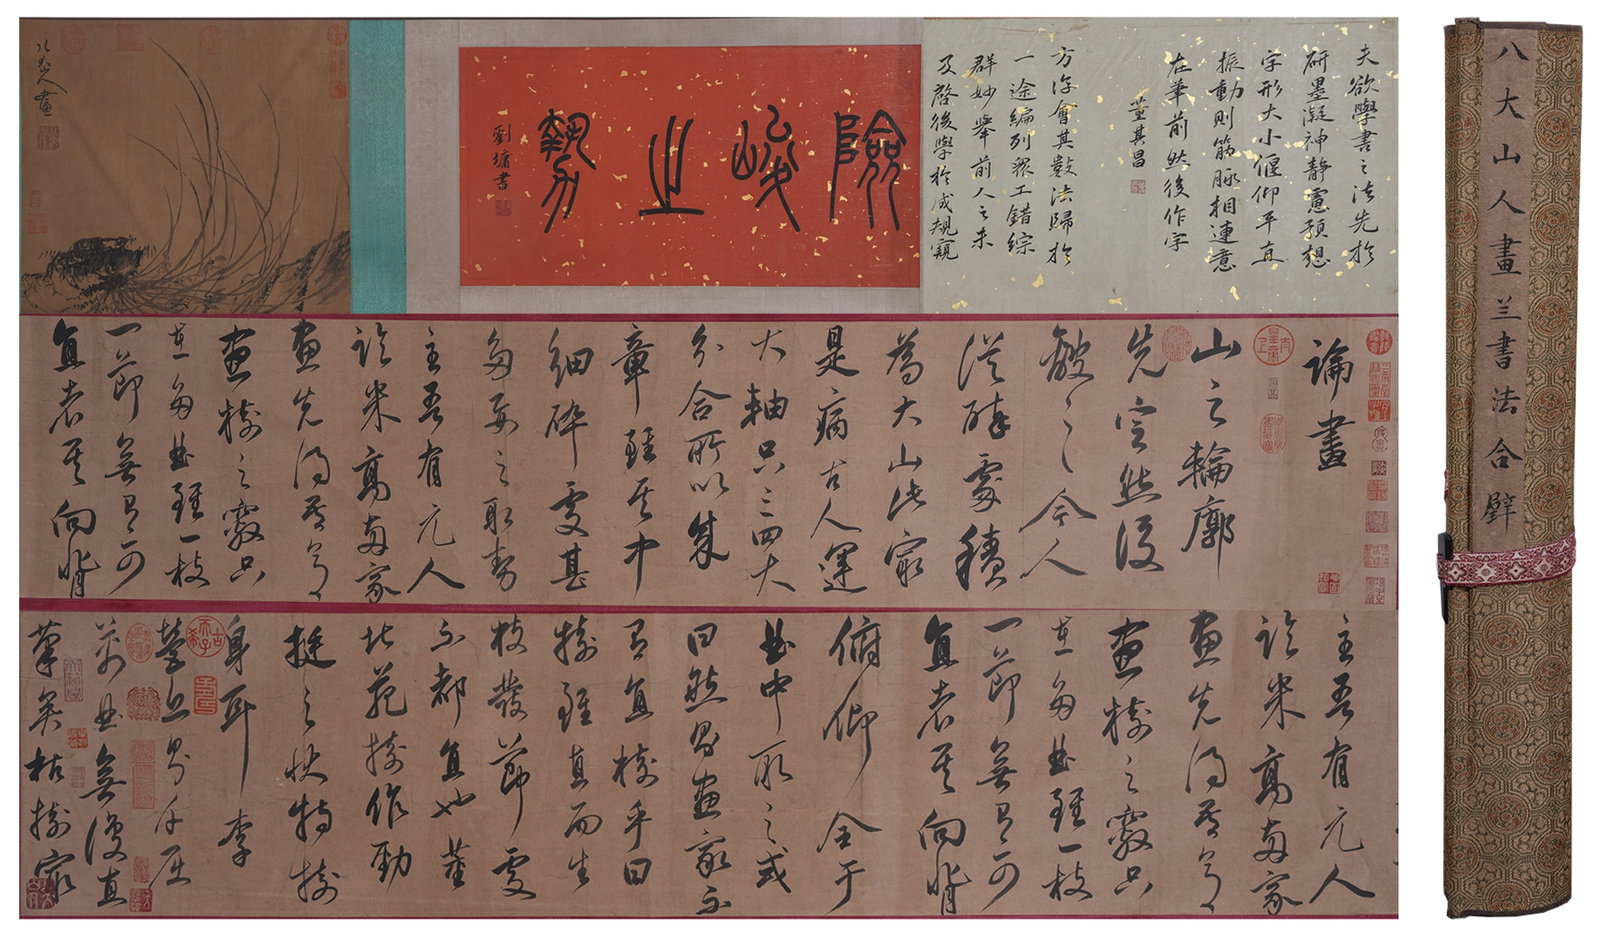 八大山人畫
險峻之勢
劉墉書
夫欲學書之法先於
研墨凝神静慮預想
字形大小偃仰平直
振動則筋脈相連意
在筆前然後作字
董其昌
方復會其數法歸於
一途編列眾工錯綜
群妙舉前人之未
及啓後學於成規窺
論畫
山之輪廓
先定然後
皴之今人
從碎處積
為大山此最
是病古人運
大軸只三四大
分合所以成
章雖其中
細碎處甚
多要之取勢
主吾有元人
論米高兩家
畫先得吾意
畫樹之竅只
在多曲雖一枝
一節無有可
直者其向背
主吾有元人
論米高兩家
畫先得吾意
畫樹之竅只
在多曲雖一枝
一節無有可
直者其向背
俯仰全于
曲中取之或
曰然則畫家不
有直樹乎曰
樹雖直而生
枝發節處
不都直也董
北苑樹作勁
挺之狀特樹
身耳李
營丘則千屈
萬曲無復直
筆矣枯樹最
八大山人畫兰書法合璧